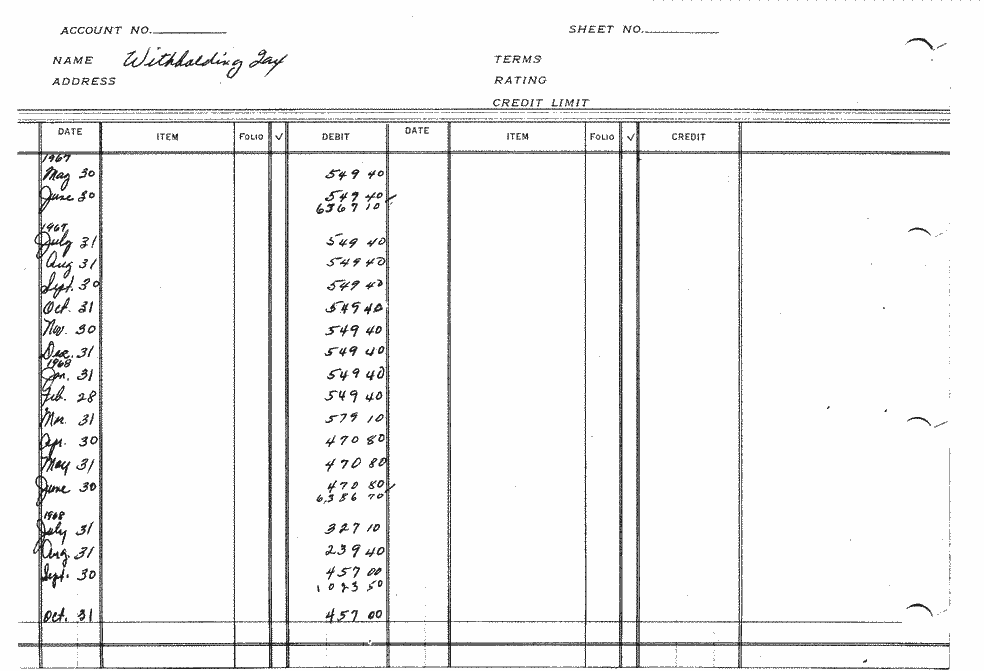 ACCOUNT NO. SHEET NO.
NAME Withholding Tax TERMS
ADDRESS RATING
CREDIT LIMIT
DATE ITEM FOLIO ✓ DEBIT DATE ITEM FOLIO ✓ CREDIT
1967
May 30 549 40
June 30 549 40 ✓
6367 10
1967
July 31 549 40
Aug 31 549 40
Sept. 30 549 40
Oct. 31 549 40
Nov. 30 549 40
Dec. 31 549 40
1968
Jan. 31 549 40
Feb. 28 549 40
Mar. 31 579 10
Apr. 30 470 80
May 31 470 80
June 30 470 80 ✓
6,386 70
1968
July 31 327 10
Aug. 31 239 40
Sept. 30 457 00
1023 50
Oct. 31 457 00